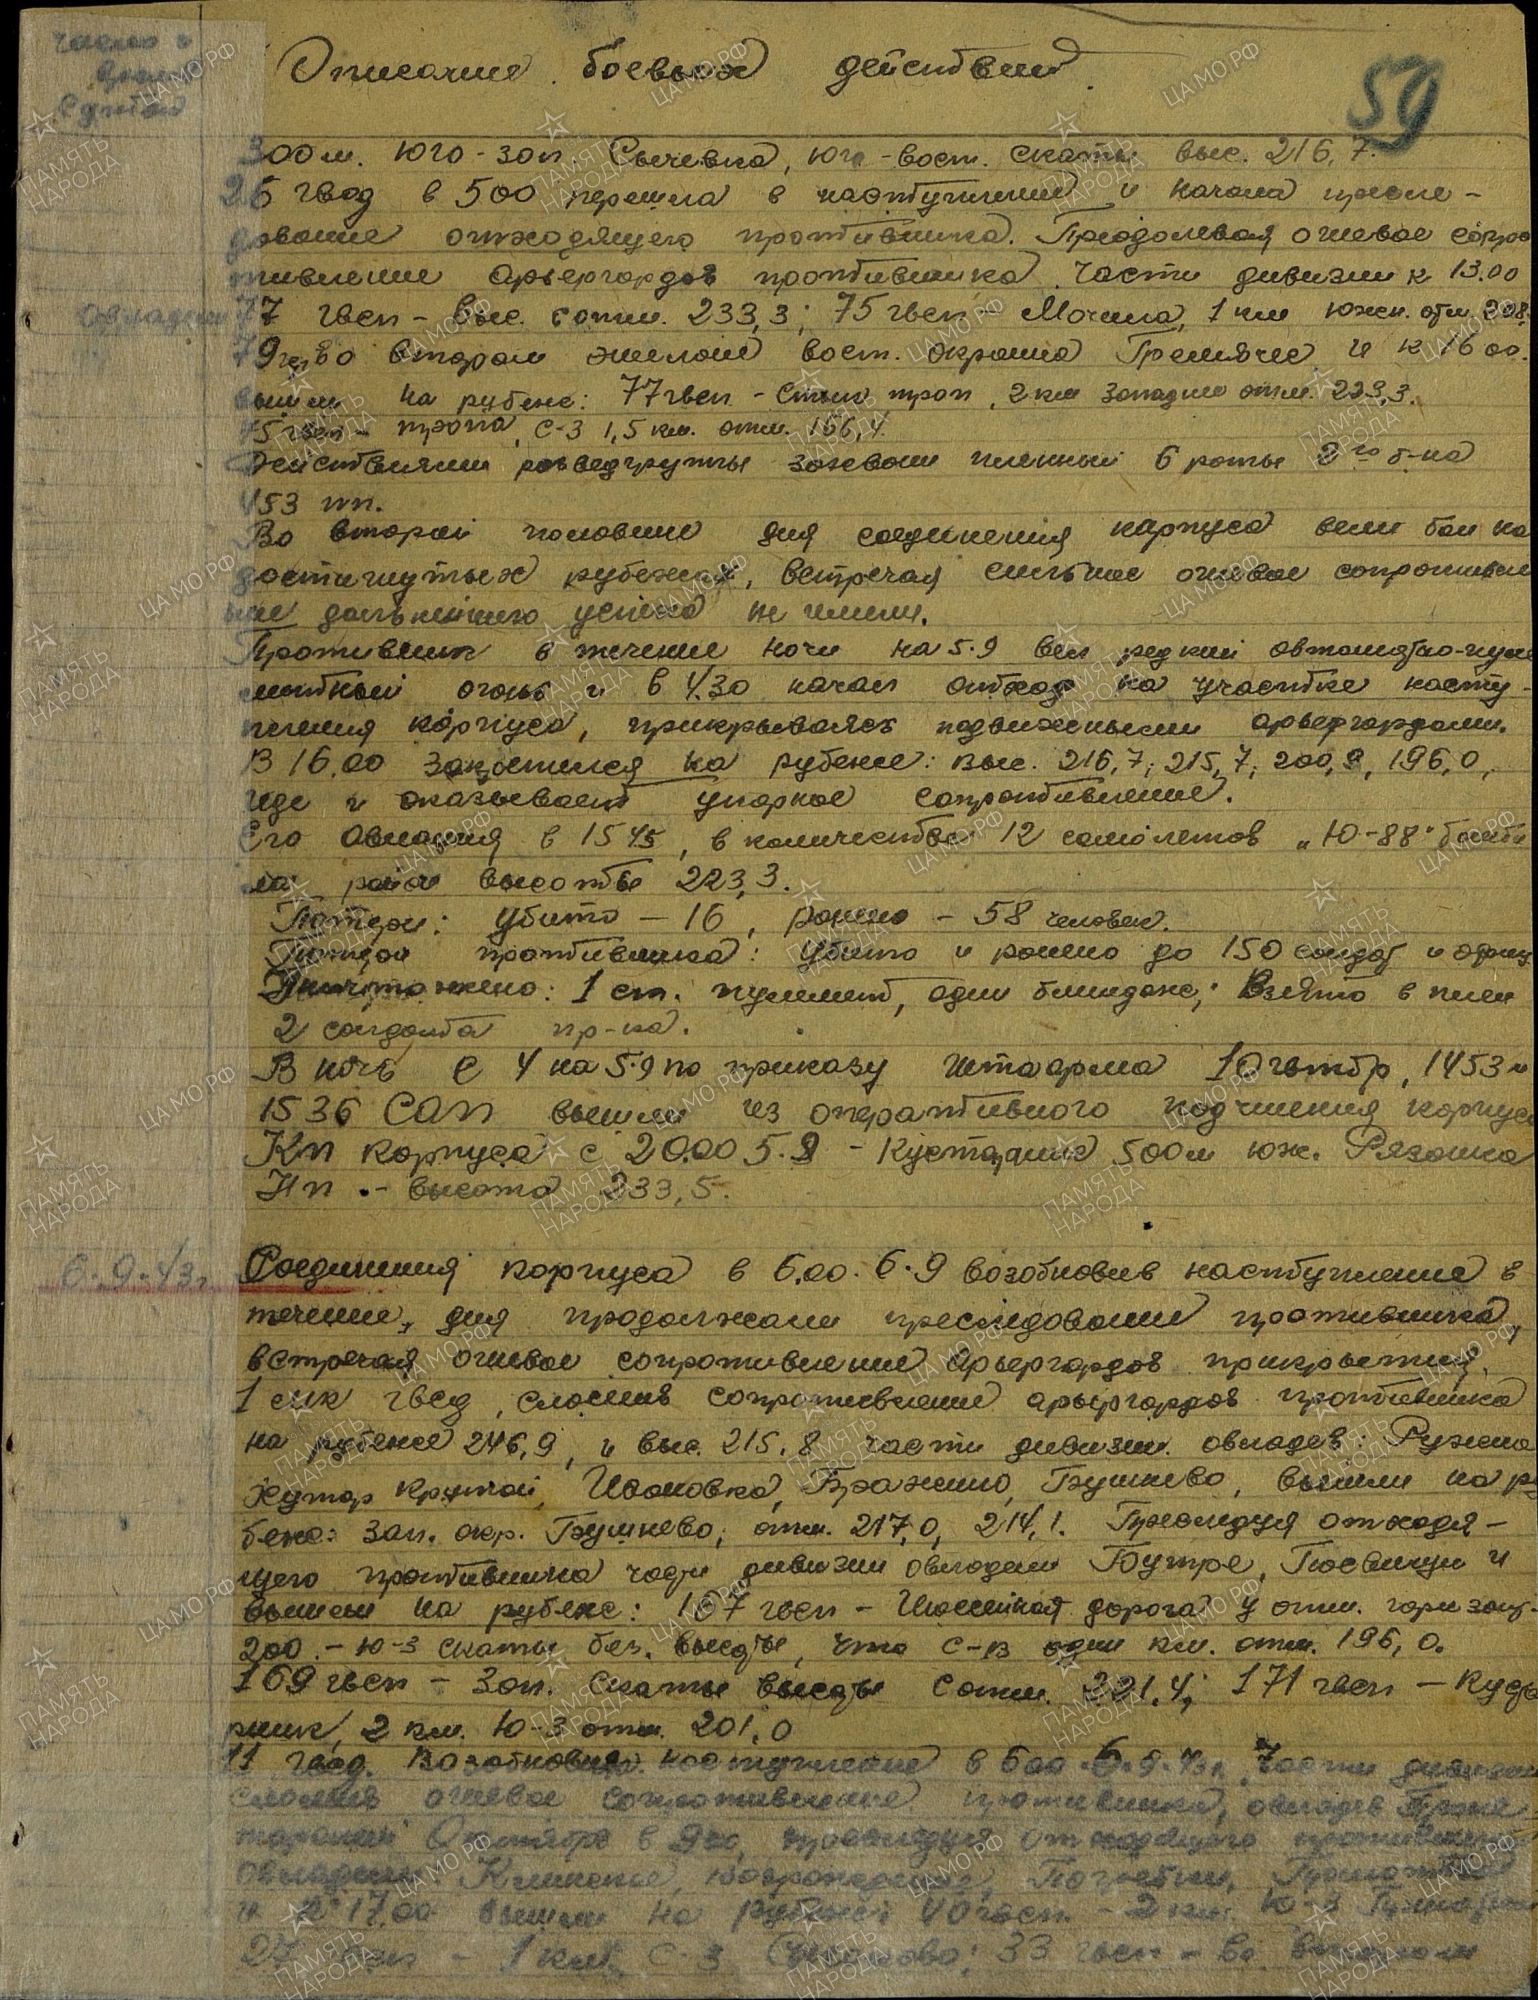 число и
время
Описание боевых действий
59
300 м. юго-зап. Сычевка, юго-вост. скаты выс. 216,7.
26 гвсд в 500 перешла в наступление и начала пресле-
дование отходящего противника. Преодолевая огневое сопро
тивление арьергардов противника части дивизии к 13.00
овладели 77 гвсп - выс. с отм. 233,3; 75 гвсп - Мочила, 1 км южн. отм. 208,
79 гвсп во втором эшелоне вост. окраина Гремячее и к 16 00.
вышли на рубеж: 77 гвсп - стык троп, 2 км западнее отм. 223,3.
75 гвсп - тропа, С-З 1,5 км. отм. 166,4.
Действиями разведгруппы захвачен пленный 6 роты 2го б-на
453 пп.
Во второй половине дня соединения корпуса вели бои на
достигнутых рубежах, встречая сильное огневое сопротивле
ние дальнейшего успеха не имели.
Противник в течение ночи на 5.9 вел редкий автоматно-пуле
метный огонь и в 4.30 начал отход на участке насту-
пления корпуса, прикрываясь подвижными арьергардами.
В 16.00 закрепился на рубеже: выс. 216,7; 215,7; 200,9, 196,0,
где и оказывает упорное сопротивление.
Его авиация в 15 45, в количестве 12 самолетов „Ю-88" бомби
ла район высоты 223,3.
Потери: убито - 16, ранено - 58 человек.
Потери противника: убито и ранено до 150 солдат и офиц
Уничтожено: 1 ст. пулемет, один блиндаж; Взято в плен
2 солдата пр-ка.
В ночь с 4 на 5.9 по приказу штаарма 10 гвтбр, 1453 и
1536 САП вышли из оперативного подчинения корпуса
Кп корпуса с 20.00 5.9 - Кустарник 500 м юж. Рязанка
Нп - высота 233,5.
6.9.43г. Соединения корпуса в 6.00. 6.9 возобновив наступление в
течение дня продолжали преследование противника,
встречая огневое сопротивление арьергардов прикрытия.
1 мск гвсд, сломив сопротивление арьергардов противника
на рубеже 246,9, и выс. 215,8 части дивизии овладев: Ружно
хутор Крутой, Ивановка, Бражино, Бушнево, вышли на р
беж: зап. окр. Бушнево, отм. 217,0, 214,1. Преследуя отходя-
щего противника части дивизии овладели Бутре, и
вышли на рубеж: 167 гвсп - Шоссейная дорога у отм. горизонт.
200 - ю-з скаты без. высоты, что с-в один км. отм. 196,0.
169 гвсп - Зап. скаты высоты с отм. 221,4; 171 гвсп - Куста
рник, 2 км. Ю-З отм. 201,0
11 гвсд. Возобновив наступление в 600. 6.9.43г. Части дивизии
сломив огневое сопротивление противника, овладев
Октября в 900, преследуя отходящего противника
овладели: Клинское, Погребки,
и к 17.00 вышли на рубеж: 40 гвсп - 2 км. Ю-З
27 гвсп - 1 км С-З 33 гвсп - Во втором